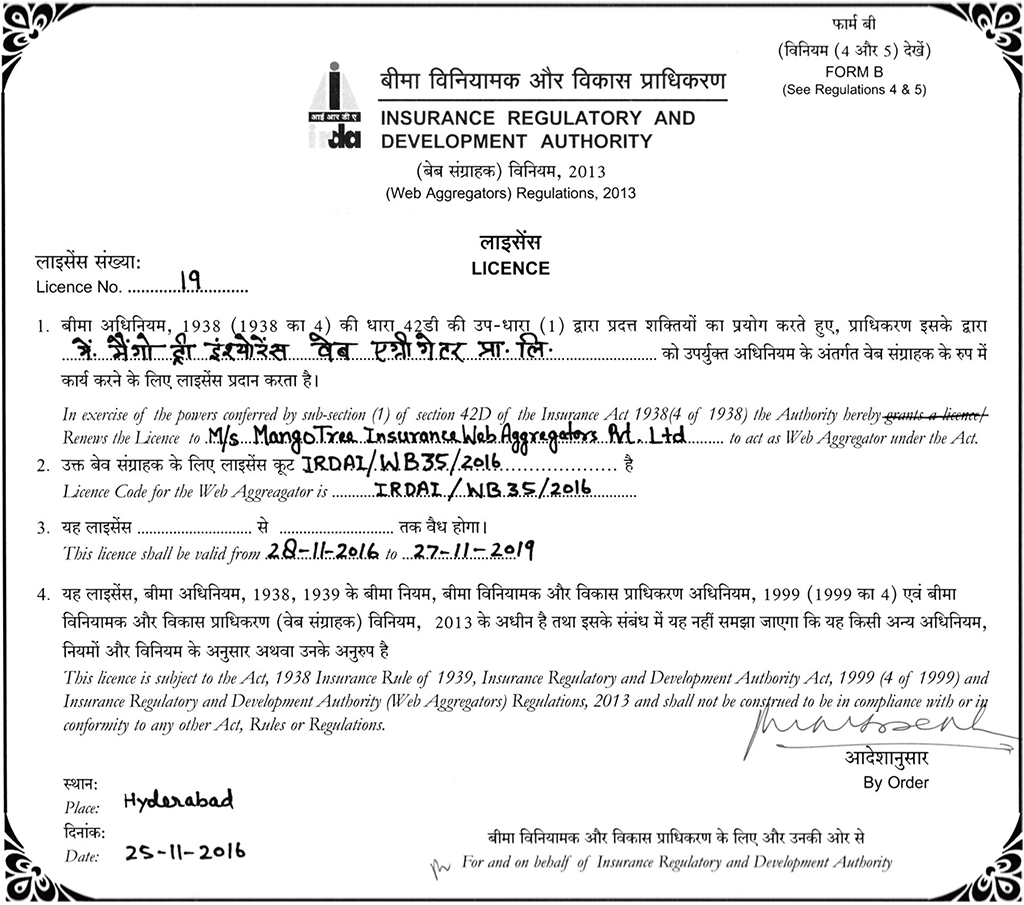 फार्म बी
(विनियम (4 और 5) देखें)
FORM B
(See Regulations 4 & 5)
आई आर डी ए
irda
बीमा विनियामक और विकास प्राधिकरण
INSURANCE REGULATORY AND
DEVELOPMENT AUTHORITY
(बेब संग्राहक) विनियम, 2013
(Web Aggregators) Regulations, 2013
लाइसेंस
LICENCE
लाइसेंस संख्या:
Licence No. ........19........
1. बीमा अधिनियम, 1938 (1938 का 4) की धारा 42डी की उप-धारा (1) द्वारा प्रदत्त शक्तियों का प्रयोग करते हुए, प्राधिकरण इसके द्वारा
मे. मैंगो ट्री इंश्योरेंस वेब एग्रीगेटर प्रा. लि. ........ को उपर्युक्त अधिनियम के अंतर्गत वेब संग्राहक के रुप में
कार्य करने के लिए लाइसेंस प्रदान करता है।
In exercise of the powers conferred by sub-section (1) of section 42D of the Insurance Act 1938(4 of 1938) the Authority hereby grants a licence/
Renews the Licence to M/s MangoTree Insurance Web Aggregators Pvt. Ltd ........ to act as Web Aggregator under the Act.
2. उक्त बेव संग्राहक के लिए लाइसेंस कूट IRDAI/WB35/2016 ........ है
Licence Code for the Web Aggreagator is ........ IRDAI/WB35/2016 ........
3. यह लाइसेंस ........ से ........ तक वैध होगा।
This licence shall be valid from 28-11-2016 to 27-11-2019
4. यह लाइसेंस, बीमा अधिनियम, 1938, 1939 के बीमा नियम, बीमा विनियामक और विकास प्राधिकरण अधिनियम, 1999 (1999 का 4) एवं बीमा
विनियामक और विकास प्राधिकरण (वेब संग्राहक) विनियम, 2013 के अधीन है तथा इसके संबंध में यह नहीं समझा जाएगा कि यह किसी अन्य अधिनियम,
नियमों और विनियम के अनुसार अथवा उनके अनुरुप है
This licence is subject to the Act, 1938 Insurance Rule of 1939, Insurance Regulatory and Development Authority Act, 1999 (4 of 1999) and
Insurance Regulatory and Development Authority (Web Aggregators) Regulations, 2013 and shall not be construed to be in compliance with or in
conformity to any other Act, Rules or Regulations.
आदेशानुसार
By Order
स्थान:
Place: Hyderabad
दिनांक:
Date: 25-11-2016
बीमा विनियामक और विकास प्राधिकरण के लिए और उनकी ओर से
For and on behalf of Insurance Regulatory and Development Authority